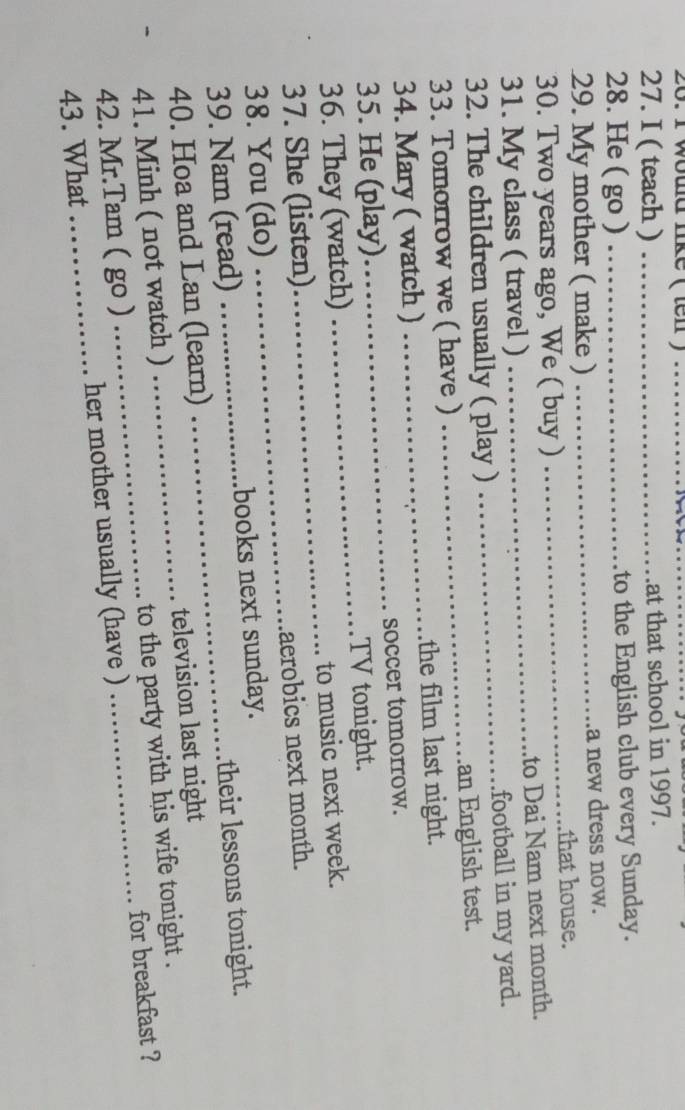 would like ( tell ) ..............................
27. I ( teach ) ........................................at that school in 1997.
28. He ( go ) ........................................to the English club every Sunday.
29. My mother ( make ) ........................................a new dress now.
30. Two years ago, We ( buy ) ........................................that house.
31. My class ( travel ) ........................................to Dai Nam next month.
32. The children usually ( play ) ........................................football in my yard.
33. Tomorrow we ( have ) ........................................an English test.
34. Mary ( watch ) ........................................the film last night.
35. He (play)........................................ soccer tomorrow.
36. They (watch) ........................................TV tonight.
37. She (listen)........................................ to music next week.
38. You (do) ........................................aerobics next month.
39. Nam (read) ..............................books next sunday.
40. Hoa and Lan (learn) ........................................their lessons tonight.
41. Minh ( not watch ) .............................. television last night
42. Mr.Tam ( go ) .............................. to the party with his wife tonight .
43. What .................. her mother usually (have ) ........................ for breakfast ?